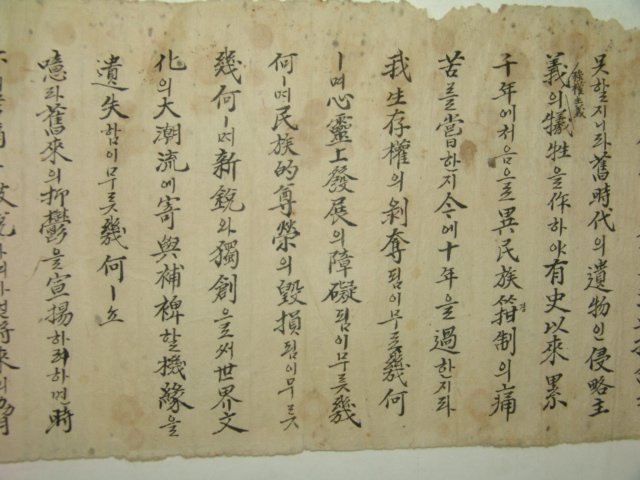 못할지니라舊時代의遺物인侵略主
義强權主義의犧牲을作하야有史以來累
千年에처음으로異民族箝制의痛
苦를嘗한지今에十年을過한지라
我生存權의剝奪됨이무릇幾何
ㅣ며心靈上發展의障礙됨이무릇幾
何ㅣ며民族的尊榮의毁損됨이무릇
幾何ㅣ며新銳와獨創으로써世界文
化의大潮流에寄與補裨할機緣을
遺失함이무릇幾何ㅣ뇨
噫라舊來의抑鬱을宣揚하랴하면時